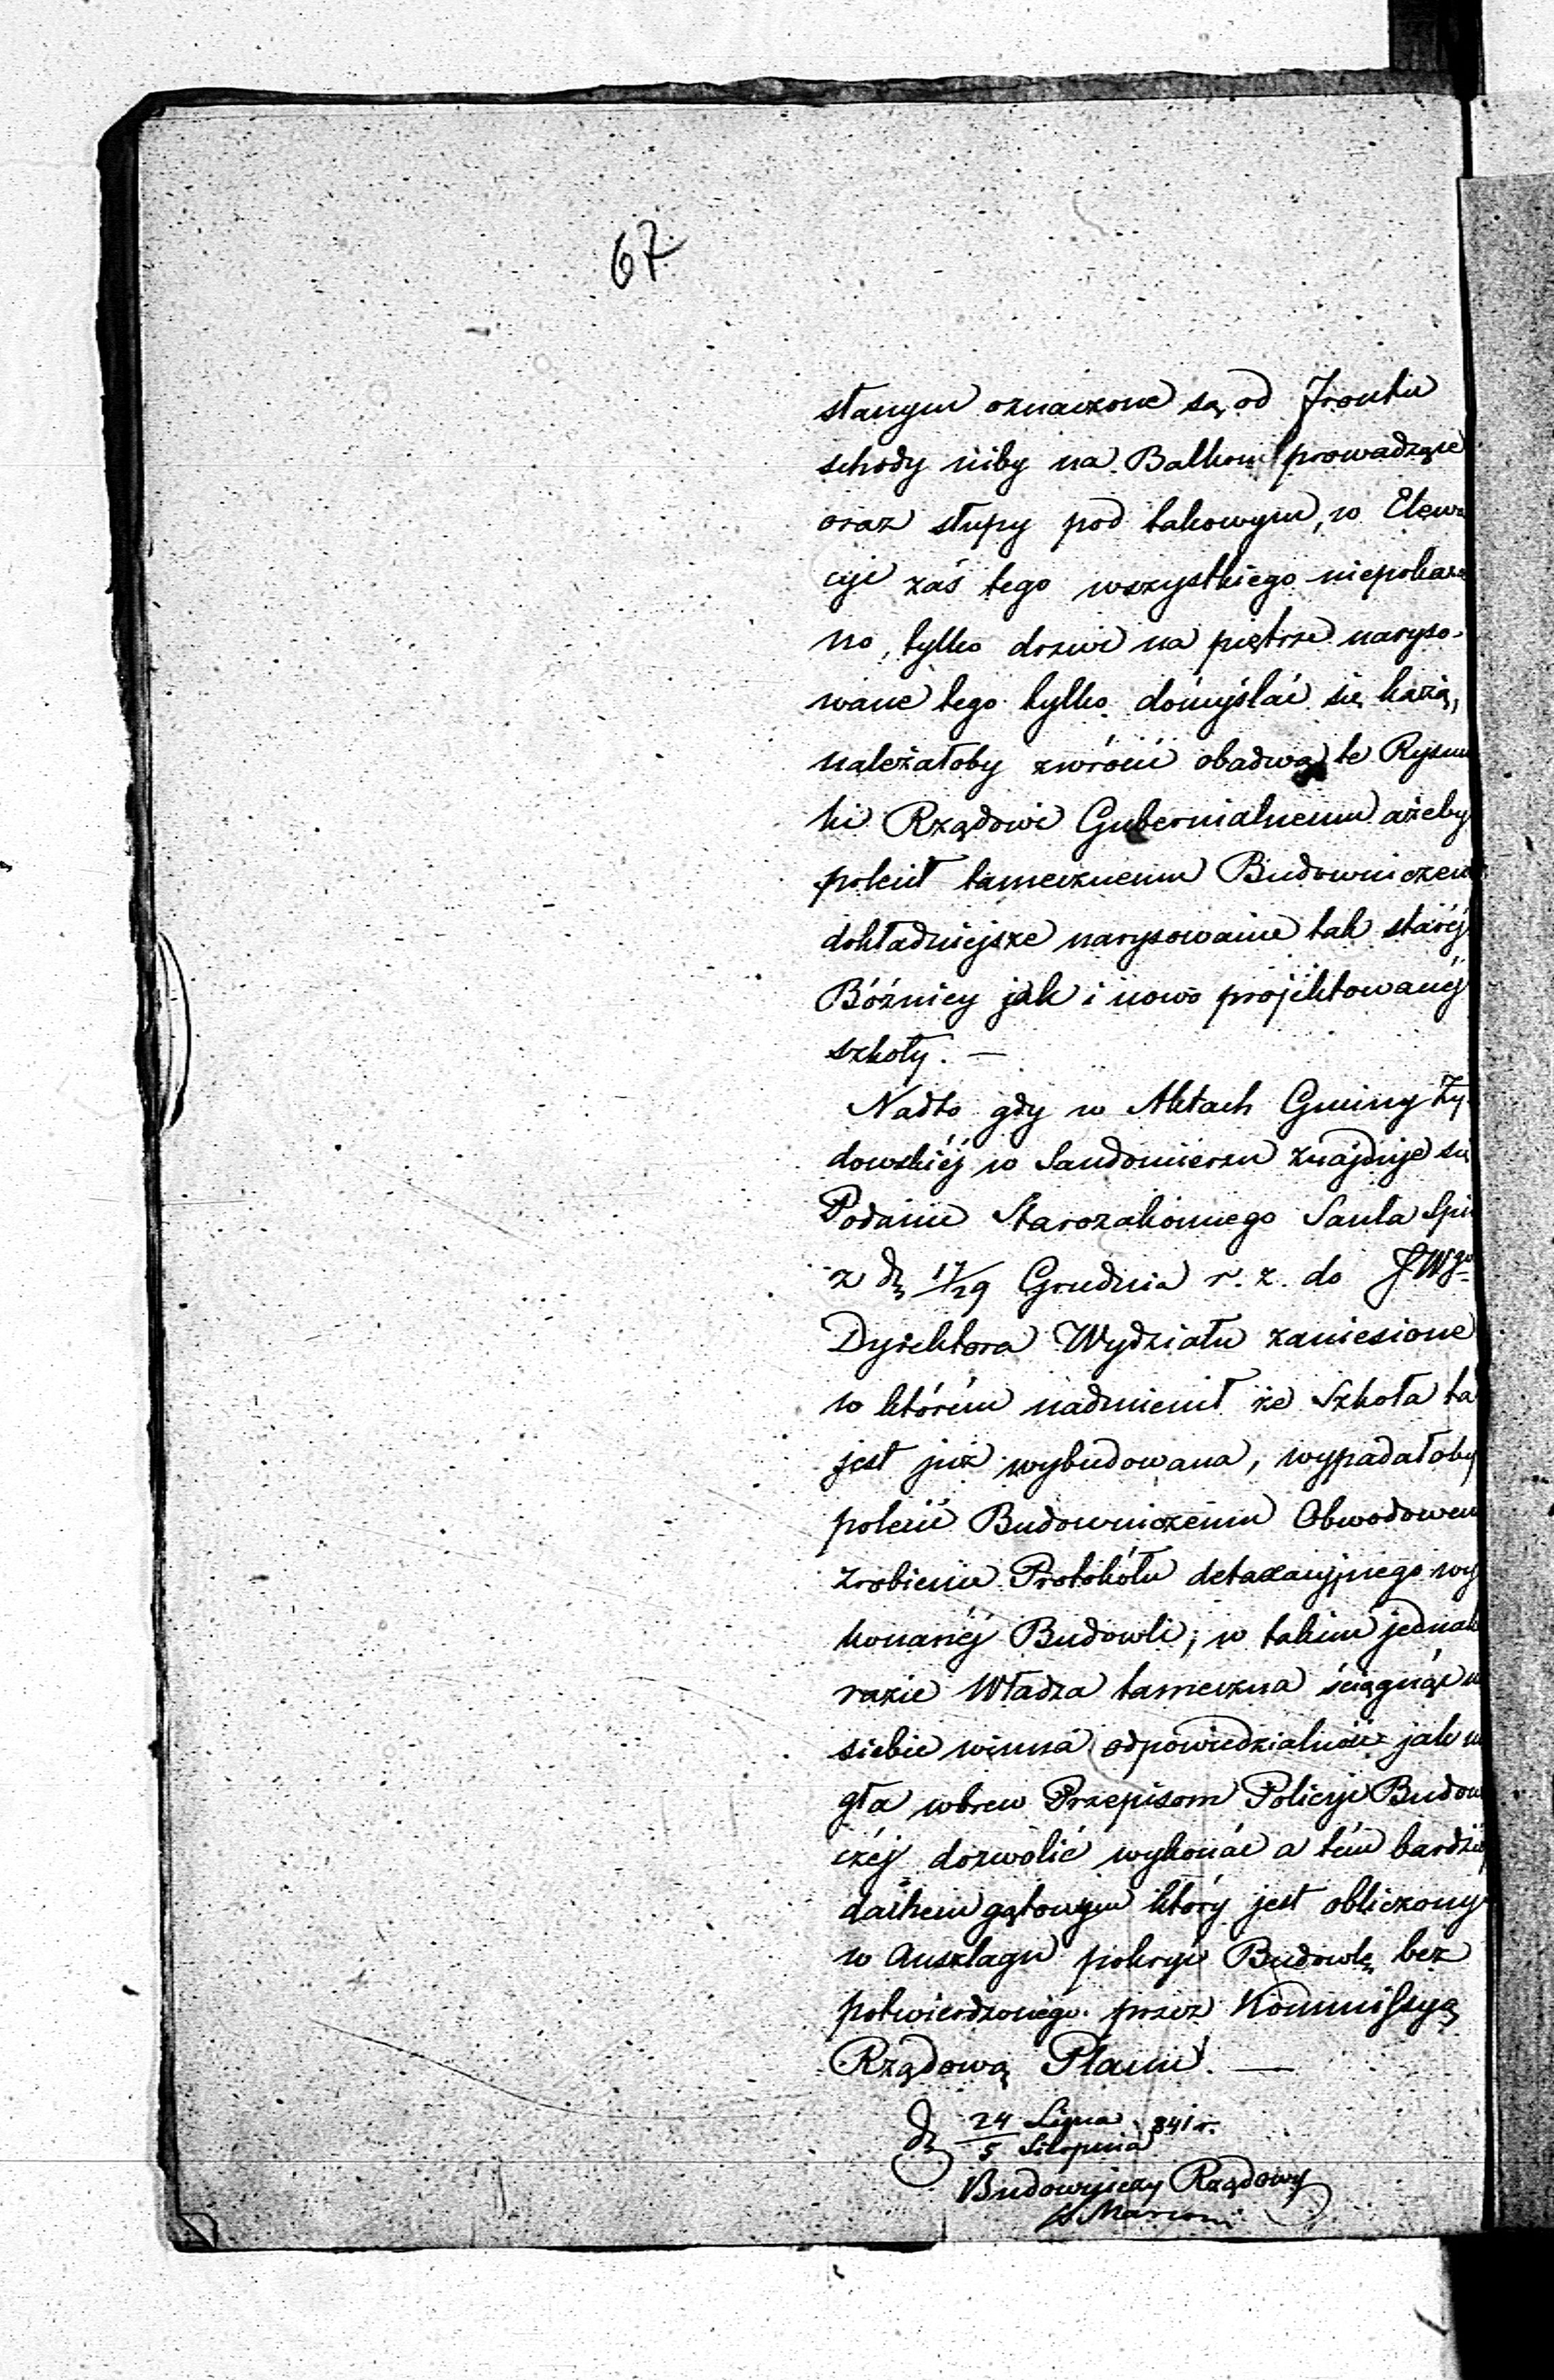 67.
stanym oznaczone są od Frontu
schody niby na Balkon prowadzące
oraz słupy pod takowym, w Elewa
cyi zaś tego wszystkiego niepokaza
no, tylko drzwi na piętrze naryso-
wane tego tylko domyślać się każą,
należałoby zwrócić obadwa te Rysun
ki Rządowi Gubernialnemu ażeby
polecił tamecznemu Budowniczem
dokładniejsze narysowanie tak staréj
Bóżnicy jak i nowo projektowanéj
szkoły. —
Nadto gdy w Aktach Gminy Ży-
dowskiéj w Sandomierzu znajduje się
Podanie Starozakonnego Saula Spi
z d. 17/29 Grudnia r. z. do JWgo
Dyrektora Wydziału zaniesione
w którém nadmienił że Szkoła ta
jest już wybudowana, wypadałoby
polecić Budowniczemu Obwodowem
zrobienie Protokółu detaxacyjnego wy
konanéj Budowli; w takim jednak
razie Władza tameczna ściągnąć n
siebie winna odpowiedzialność jak m
gła wbrew Przepisom Policyi Budow
czéj dozwolić wykonać a tém bardzié
dachem gątowym który jest obliczony
w Anszlagu pokryć Budowlę bez
potwierdzonego przez Kommissyą
Rządową Planu. —
d. 24 Lipca / 5 Sierpnia 841 r.
Budowniczy Rządowy
Marconi